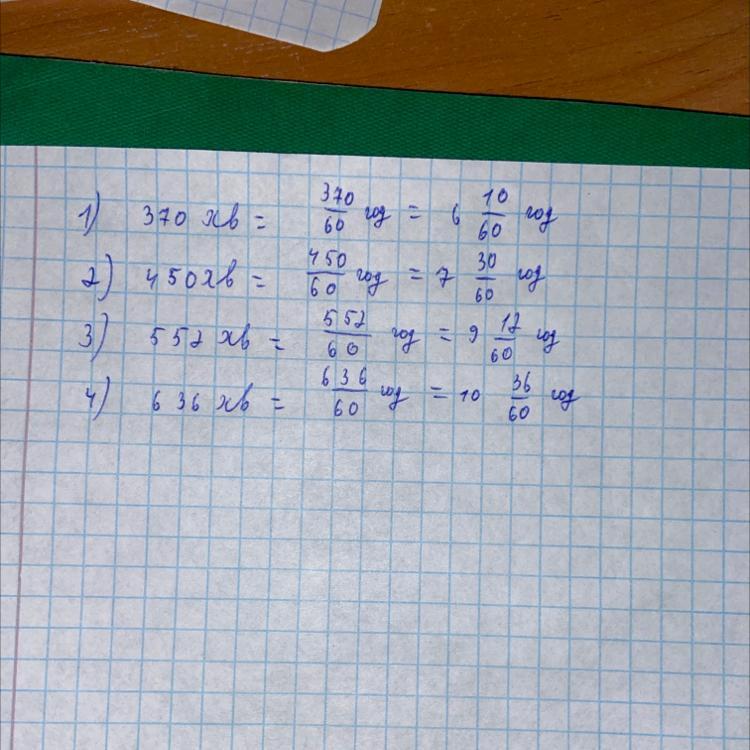 1) 370 хв = 370/60 год = 6 10/60 год
2) 450 хв = 450/60 год = 7 30/60 год
3) 552 хв = 552/60 год = 9 12/60 год
4) 636 хв = 636/60 год = 10 36/60 год